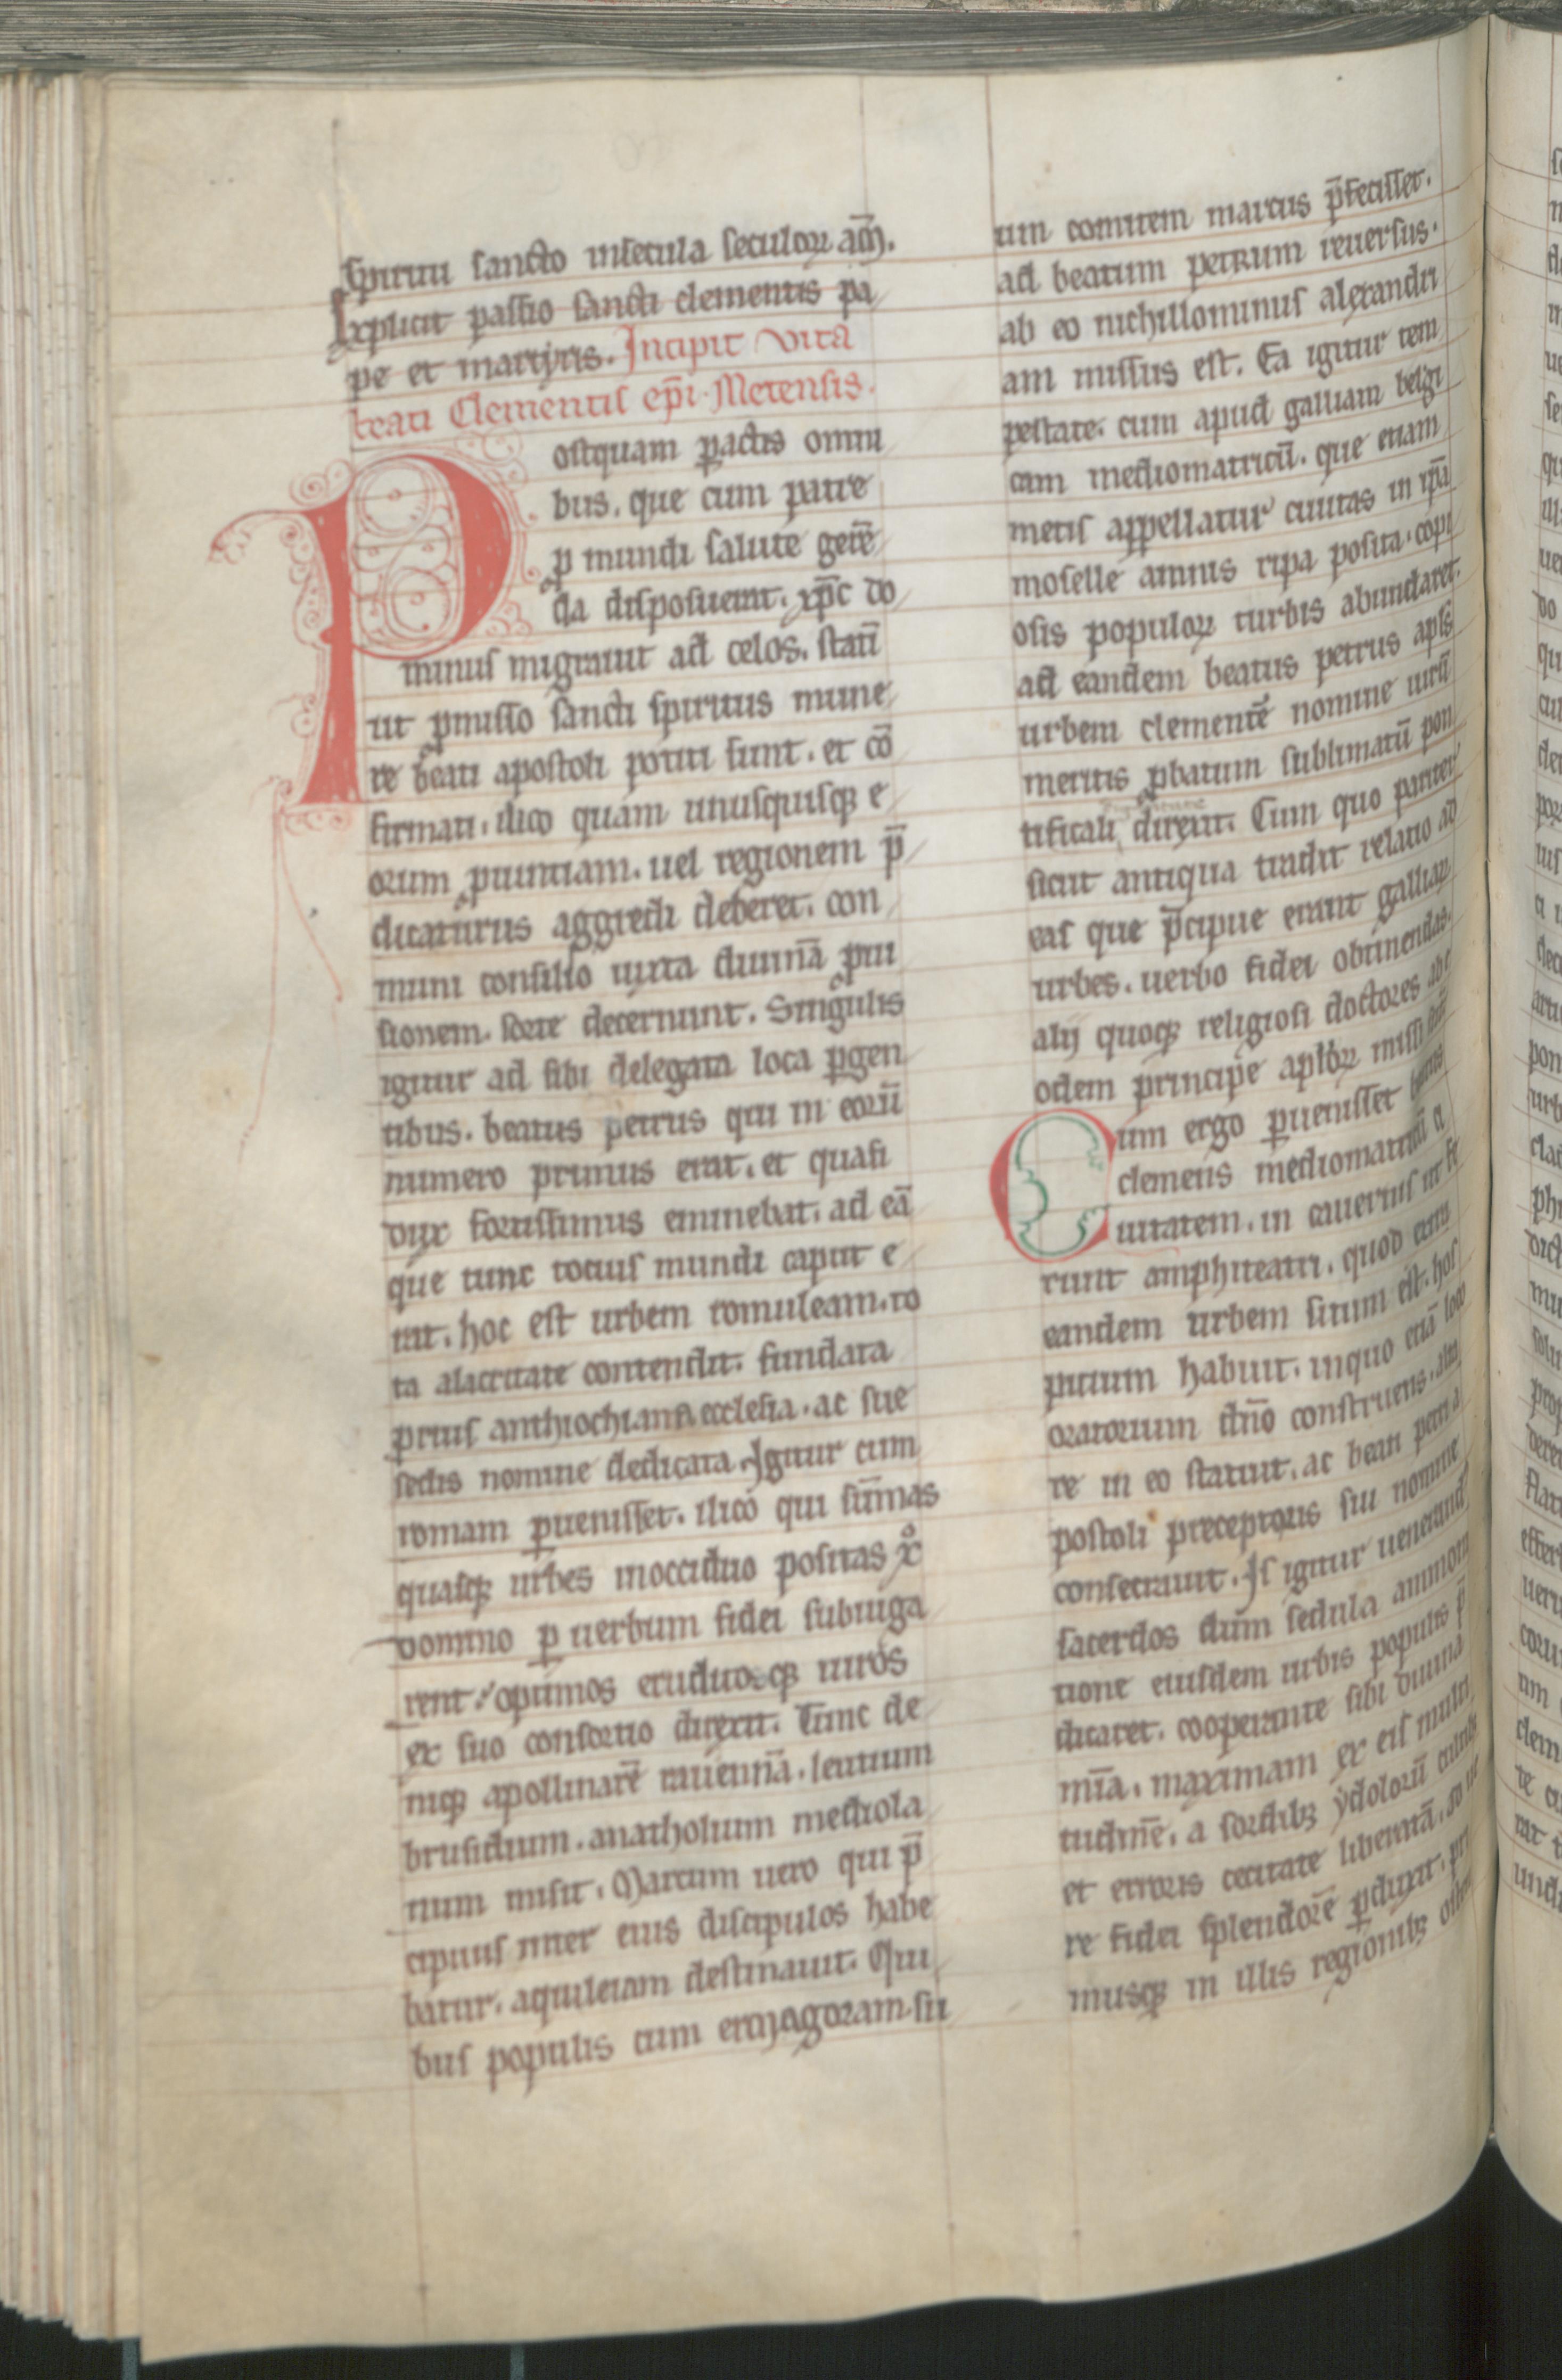 Spiritu sancto insecula seculoꝝ am̅.
Explicit passio sancti clementis pa
pe et martyris. Incipit vita
beati Clementis ep̅i Metensis.
Postquam ꝑactis omni
bus. que cum patre
ꝓ mundi salute gere̅
da disposuerat. xp̅c do
minus migrauit ad celos. stati̅
ut ꝓmisso sancti spiritus mune
re beati apostoli potiti sunt. et co̅
firmati. ilico quam unusquisqꝫ e
orum ꝓuintiam. uel regionem p̅
dicaturus aggredi deberet. con
muni consilio iuxta diuina̅ ꝓui
sionem. sorte decernunt. Singulis
igitur ad sibi delegata loca ꝑgen
tibus. beatus petrus qui in eoru̅
numero primus erat. et quasi
dux fortissimus eminebat. ad ea̅
que tunc tocius mundi caput e
rat. hoc est urbem romuleam. to
ta alacritate contendit. fundata
prius anthiochiana ecclesia. ac sue
sedis nomine dedicata. Igitur cum
romam ꝑuenisset. ilico qui su̅mas
quasqꝫ urbes inocciduo positas xͦ
domino ꝑ uerbum fidei subiuga
rent. optimos eruditosqꝫ uiros
ex suo consortio direxit. Tunc de
niqꝫ apollinare̅ rauenna̅. leutium
brusidium. anatholium mediola
num misit. Marcum uero qui p̅
cipuus inter eius discipulos habe
batur. aquileiam destinauit. Qui
bus populis cum ermagoram su
um comitem marcus p̅fecisset.
ad beatum petrum reuersus.
ab eo nichillominus alexandri
am missus est. Ea igitur tem
pestate. cum apud galliam belgi
cam mediomatricu̅. que etiam
metis appellatur ciuitas in ripa̅
moselle amnis ripa posita. copi
osis populoꝝ turbis abundaret.
ad eandem beatus petrus apl̅s
urbem clemente̅ nomine uiru̅
meritis ꝓbatum sublimatu̅ pon
tificali direxit. Cum quo pariter
sicut antiqua tradit relatio ad
eas que p̅cipue erant galliaꝝ
urbes. uerbo fidei obtinendas.
alij quoqꝫ religiosi doctores ab e
odem principe apl̅oꝝ missi
Cum ergo ꝑuenisset beatus
clemens mediomatricu̅ ci
uitatem. in cauernis ut fe
runt amphiteatri. quod extra
eandem urbem situm est. hos
pitium habuit. inquo etia̅ loco
oratorium dn̅o construens. alta
re in eo statuit. ac beati petri a
postoli preceptoris sui nomine
consecrauit. Is igitur uenerand
sacerdos dum sedula ammoni
tione eiusdem urbis populis p̅
dicaret. cooperante sibi diuina
mi̅a. maximam ex eis multi
tudine̅. a sordibꝫ ydoloru̅
et erroris cecitate liberata̅. ad ue
re fidei splendore̅ ꝑduxit. pri
musqꝫ in illis regionibꝫ